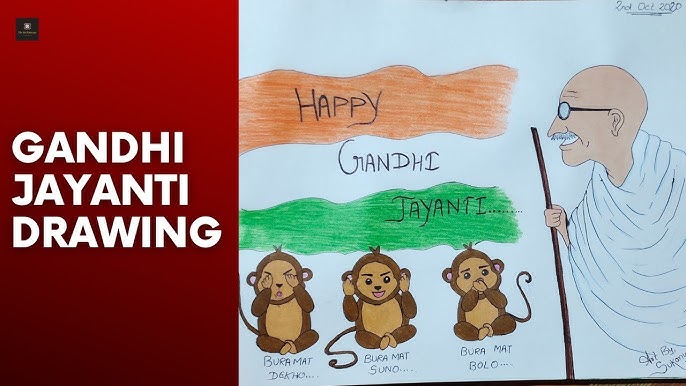 GANDHI
JAYANTI
DRAWING
2nd Oct 2020
HAPPY
GANDHI
JAYANTI.........
BURA MAT
DEKHO....
BURA MAT
SUNO....
BURA MAT
BOLO....
Art By